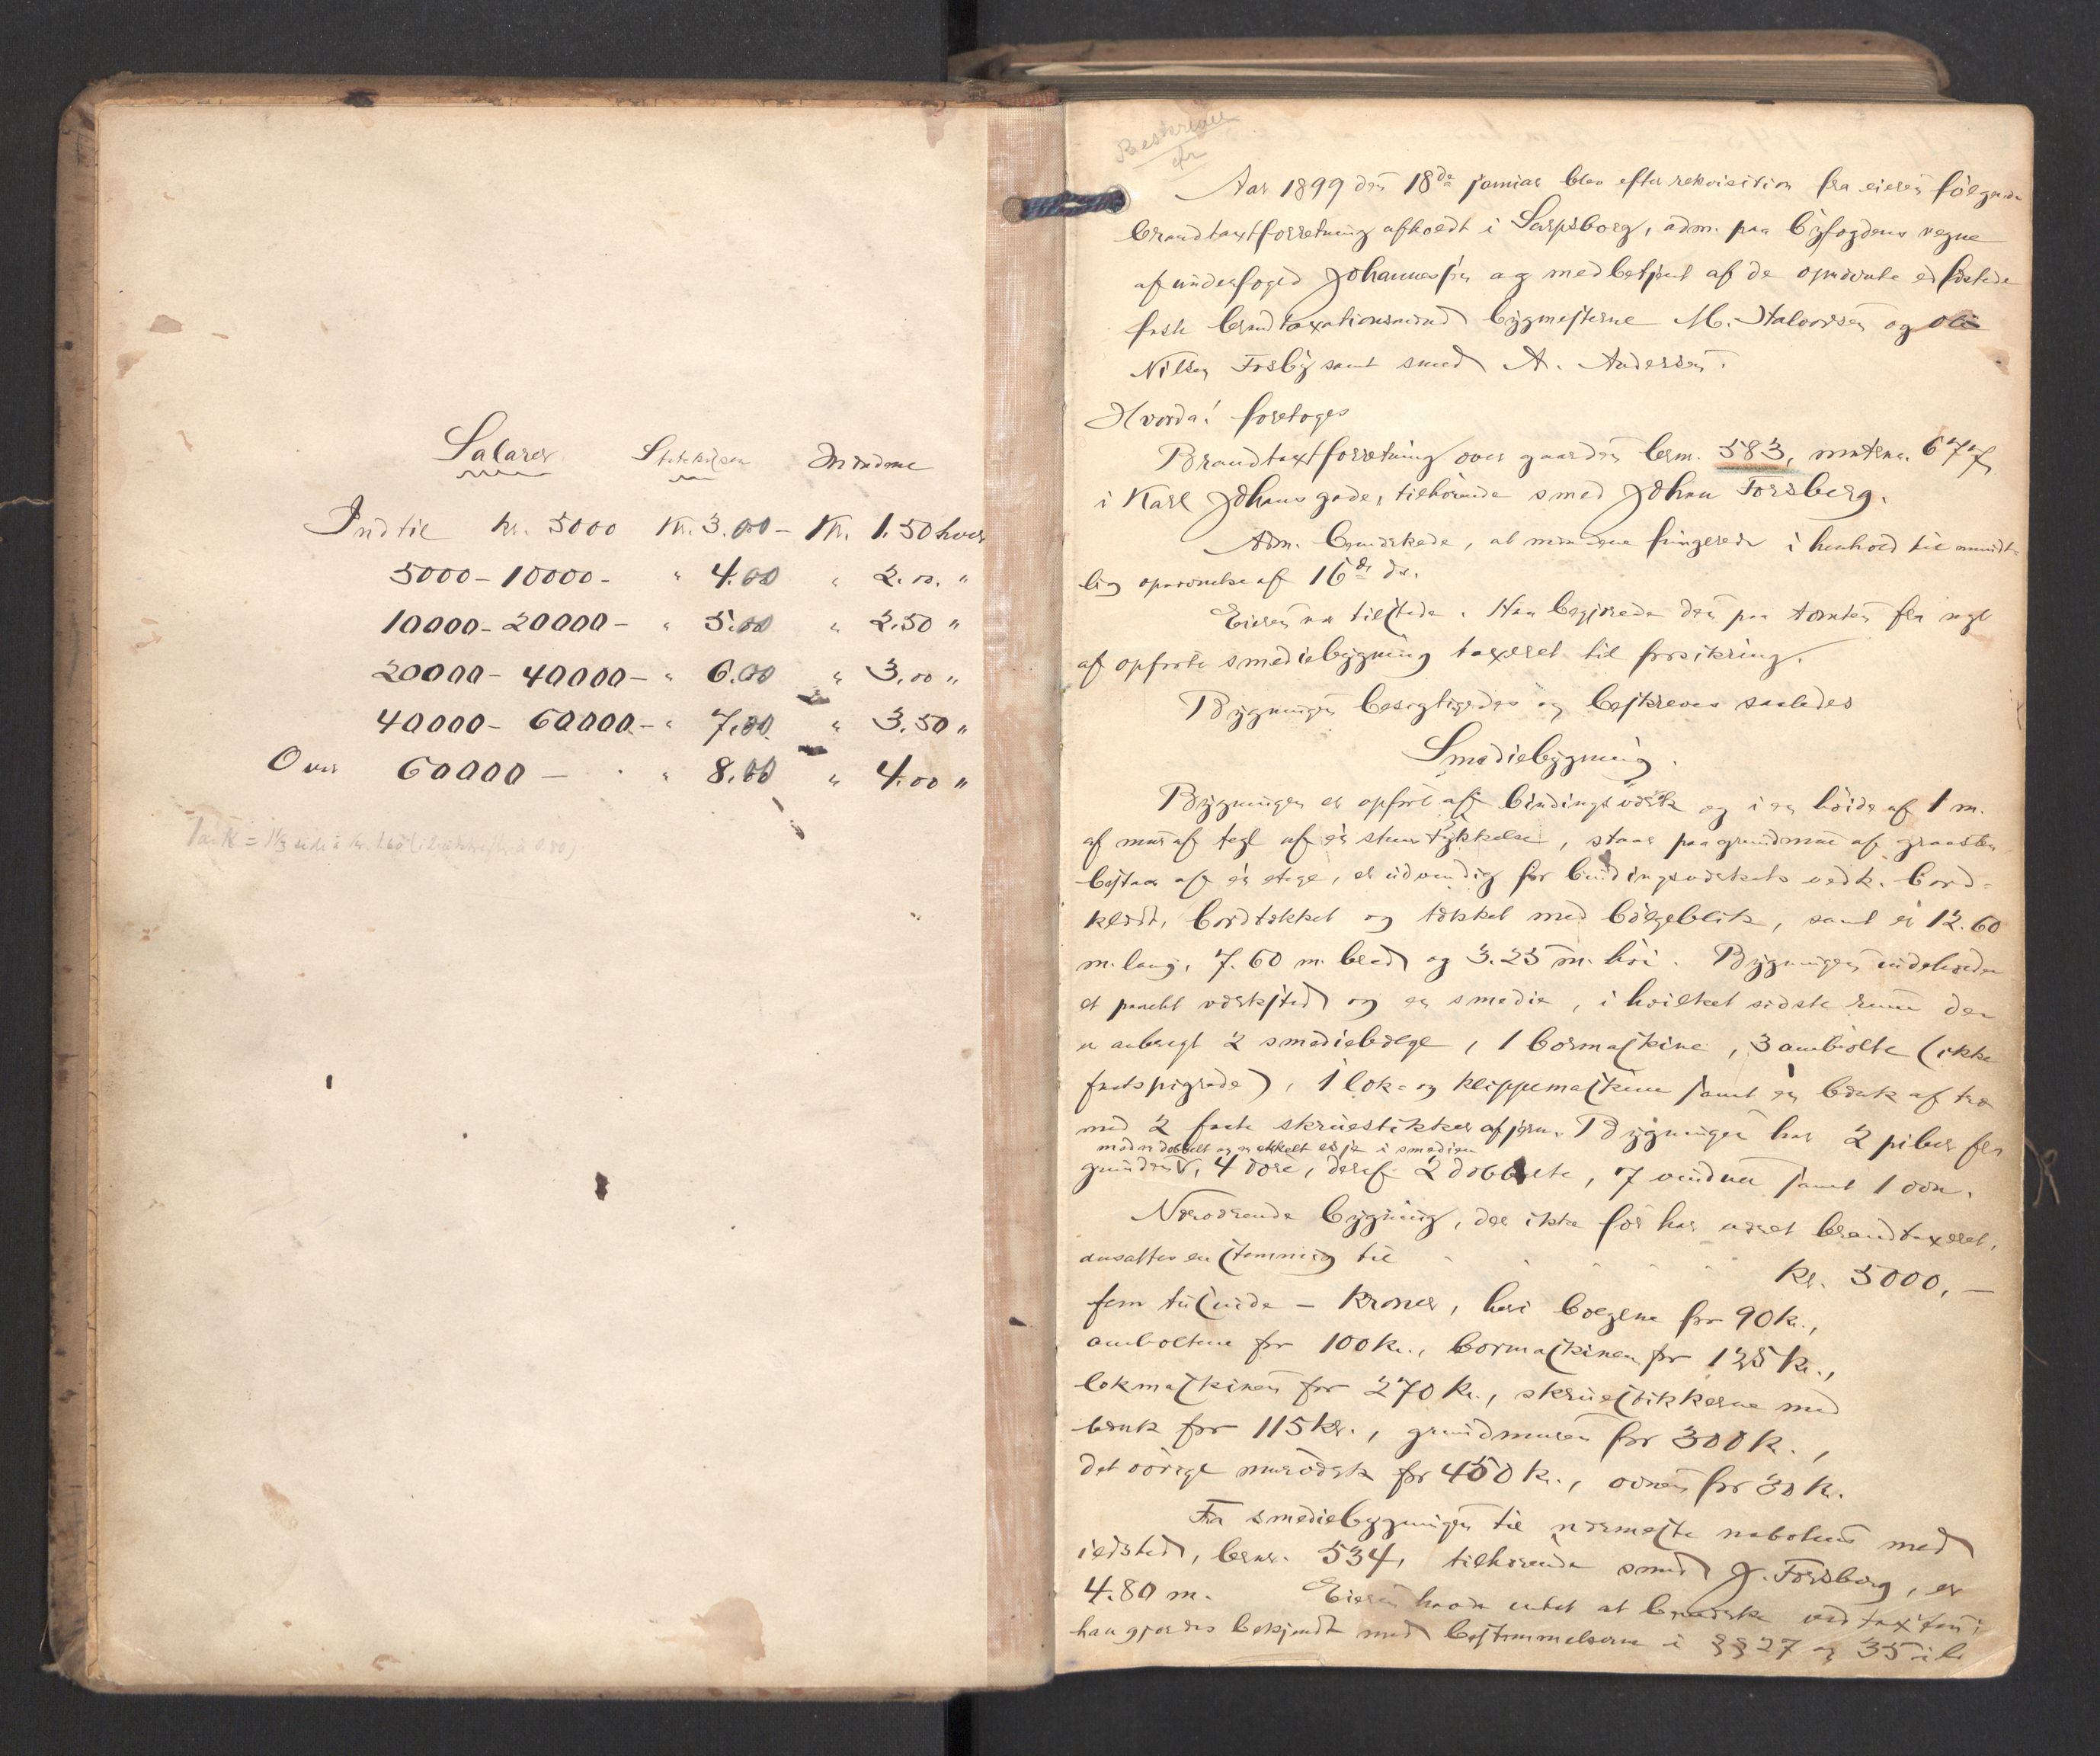 Salarer Statskassen Mændene
Indtil kr. 5000 Kr. 3.00 - Kr. 1.50 hver
5000 - 10000 - " 4.00 " 2.00. "
10000 - 20000 - " 5.00 " 2.50 "
20000 - 40000 - " 6.00 " 3.00 "
40000 - 60000 - " 7.00 " 3.50 "
Over 60000 - " 8.00 " 4.00 "
Aar 1899 den 18de januar blev efter rekvisition fra eieren følgende
brandtaxtforretning afholdt i Sarpsborg, adm. paa byfogdens vegne
af underfoged Johannessen og med betjent af de opnævnte edfæstede
faste brandtaxationsmænd bygmestrene M. Halvorsen og Ole
Nilsen Fosby samt smed A. Andersen.
Hvorda! foretoges
Brandtaxtforretning over gaarden brnr. 583, matrnr. 677
i Karl Johans gade, tilhørende smed Johan Forsberg.
Adm. bemærkede, at mændene fungerede i henhold til mundt-
lig opnævnelse af 16de ds.
Eieren var tilstede. Han begjærede den paa tomten fra nyt
af opførte smediebygning taxeret til forsikring.
Bygningen besigtigedes og beskreves saaledes
Smediebygning.
Bygningen er opført af bindingsværk og i en høide af 1 m.
af mur af tegl af én stens tykkelse, staar paa grundmur af graasten
bestaar af én etage, er udvendig for bindingsværkets vedk. bord-
klædt, bordtækket og tækket med bølgeblik, samt er 12.60
m. lang, 7.60 m. bred og 3.25 m. høi. Bygningen indeholder
et panelt værksted og en smedie, i hvilket sidste rum der
er anbragt 2 smediebælge, 1 bormaskine, 3 ambolte (ikke
fastspigrede), 1 lok- og klippemaskine samt en bænk af træ
med 2 faste skruestikker af jern. Bygningen har 2 piber fra
med en dobbelt og en enkelt esje i smedien
grunden, 4 døre, deraf 2 dobbelte, 7 vinduer samt 1 ovn.
Nærværende bygning, der ikke før har været brandtaxeret,
ansattes enstemmig til . . . . . kr. 5000,-
fem tusinde - kroner, heri bælgene for 90 kr.,
amboltene for 100 kr., bormaskinen for 125 kr.,
lokmaskinen for 270 kr., skruestikkerne med
bænk for 115 kr., grundmuren for 300 kr.,
det øvrige murværk for 450 kr., ovnen for 30 kr.
Fra smediebygningen til nærmeste nabohus med
ildsted, brnr. 534, tilhørende smed J. Forsberg, er
4.80 m. Eieren havde intet at bemærke ved taxten;
han gjordes bekjendt med bestemmelserne i §§ 27 og 35 i lov